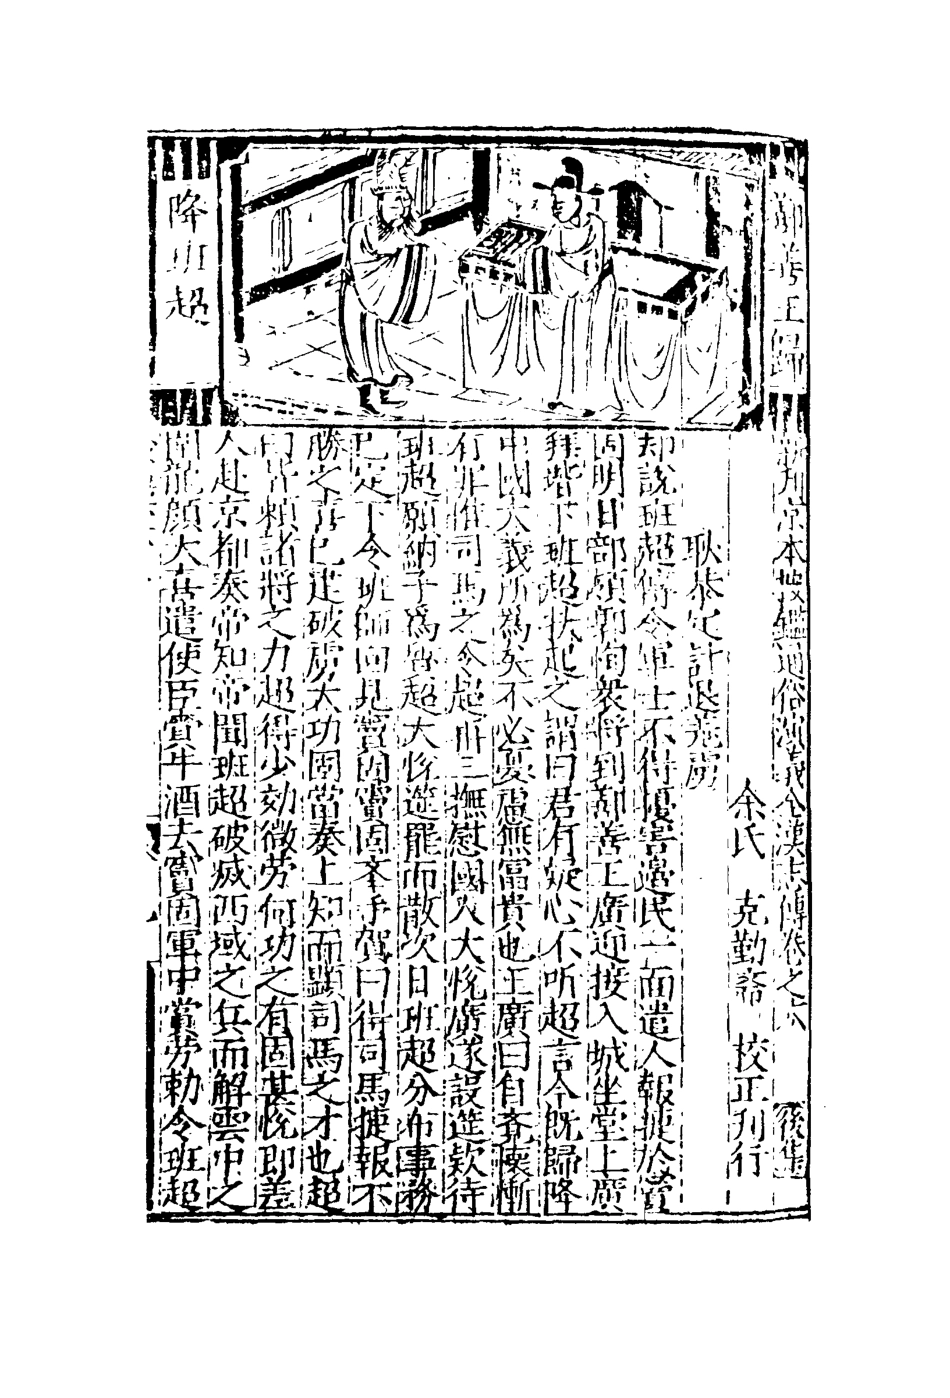 鄯善王歸
降班超
新刋京本按鑑通俗演義全漢志傳卷之六 後集
余氏 克勤齋 校正刋行
耿恭定計退羗虜
却說班超傳令軍士不得擾害邊民一面遣人報捷於竇
固明日部領郭恂衆將到鄯善王廣迎接入城坐堂上廣
拜堦下班超扶起之謂曰君有疑心不听超言今既歸降
中國大義所爲矣不必憂慮無富貴也王廣曰自吝懷慚
有罪惟司馬之令超再三撫慰國人大悅廣遂設筵欵待
班超願納子爲質超大悅筵罷而散次日班超分布事務
已定下令班師回見竇固竇固奉手賀曰得司馬捷報不
勝之喜已建破虜大功固當奏上知而顯司馬之才也超
曰皆頼諸將之力超得少効微劳何功之有固甚悅即差
人赴京都奏帝知帝聞班超破滅西域之兵而解雲中之
圍龍顔大喜遣使臣賫牛酒去竇固軍中賞劳勅令班超